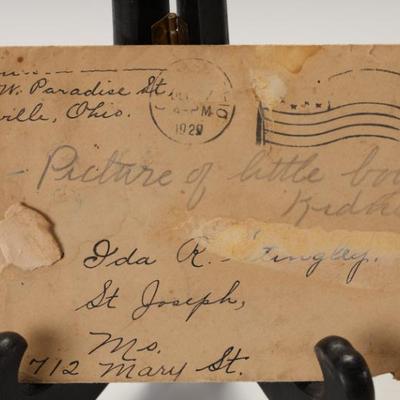 W. Paradise St.
ville, Ohio.
PM
1929
Picture of little
Ida R.
St Joseph,
Mo.
712 Mary St.